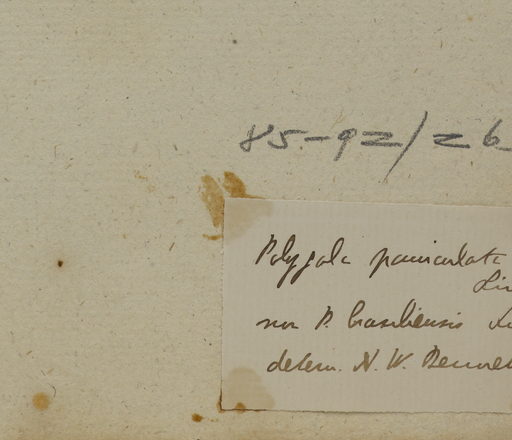 85-92/26
Polygala paniculata
Lin
non P. brasiliensis Li
determ. N. W. Bennet